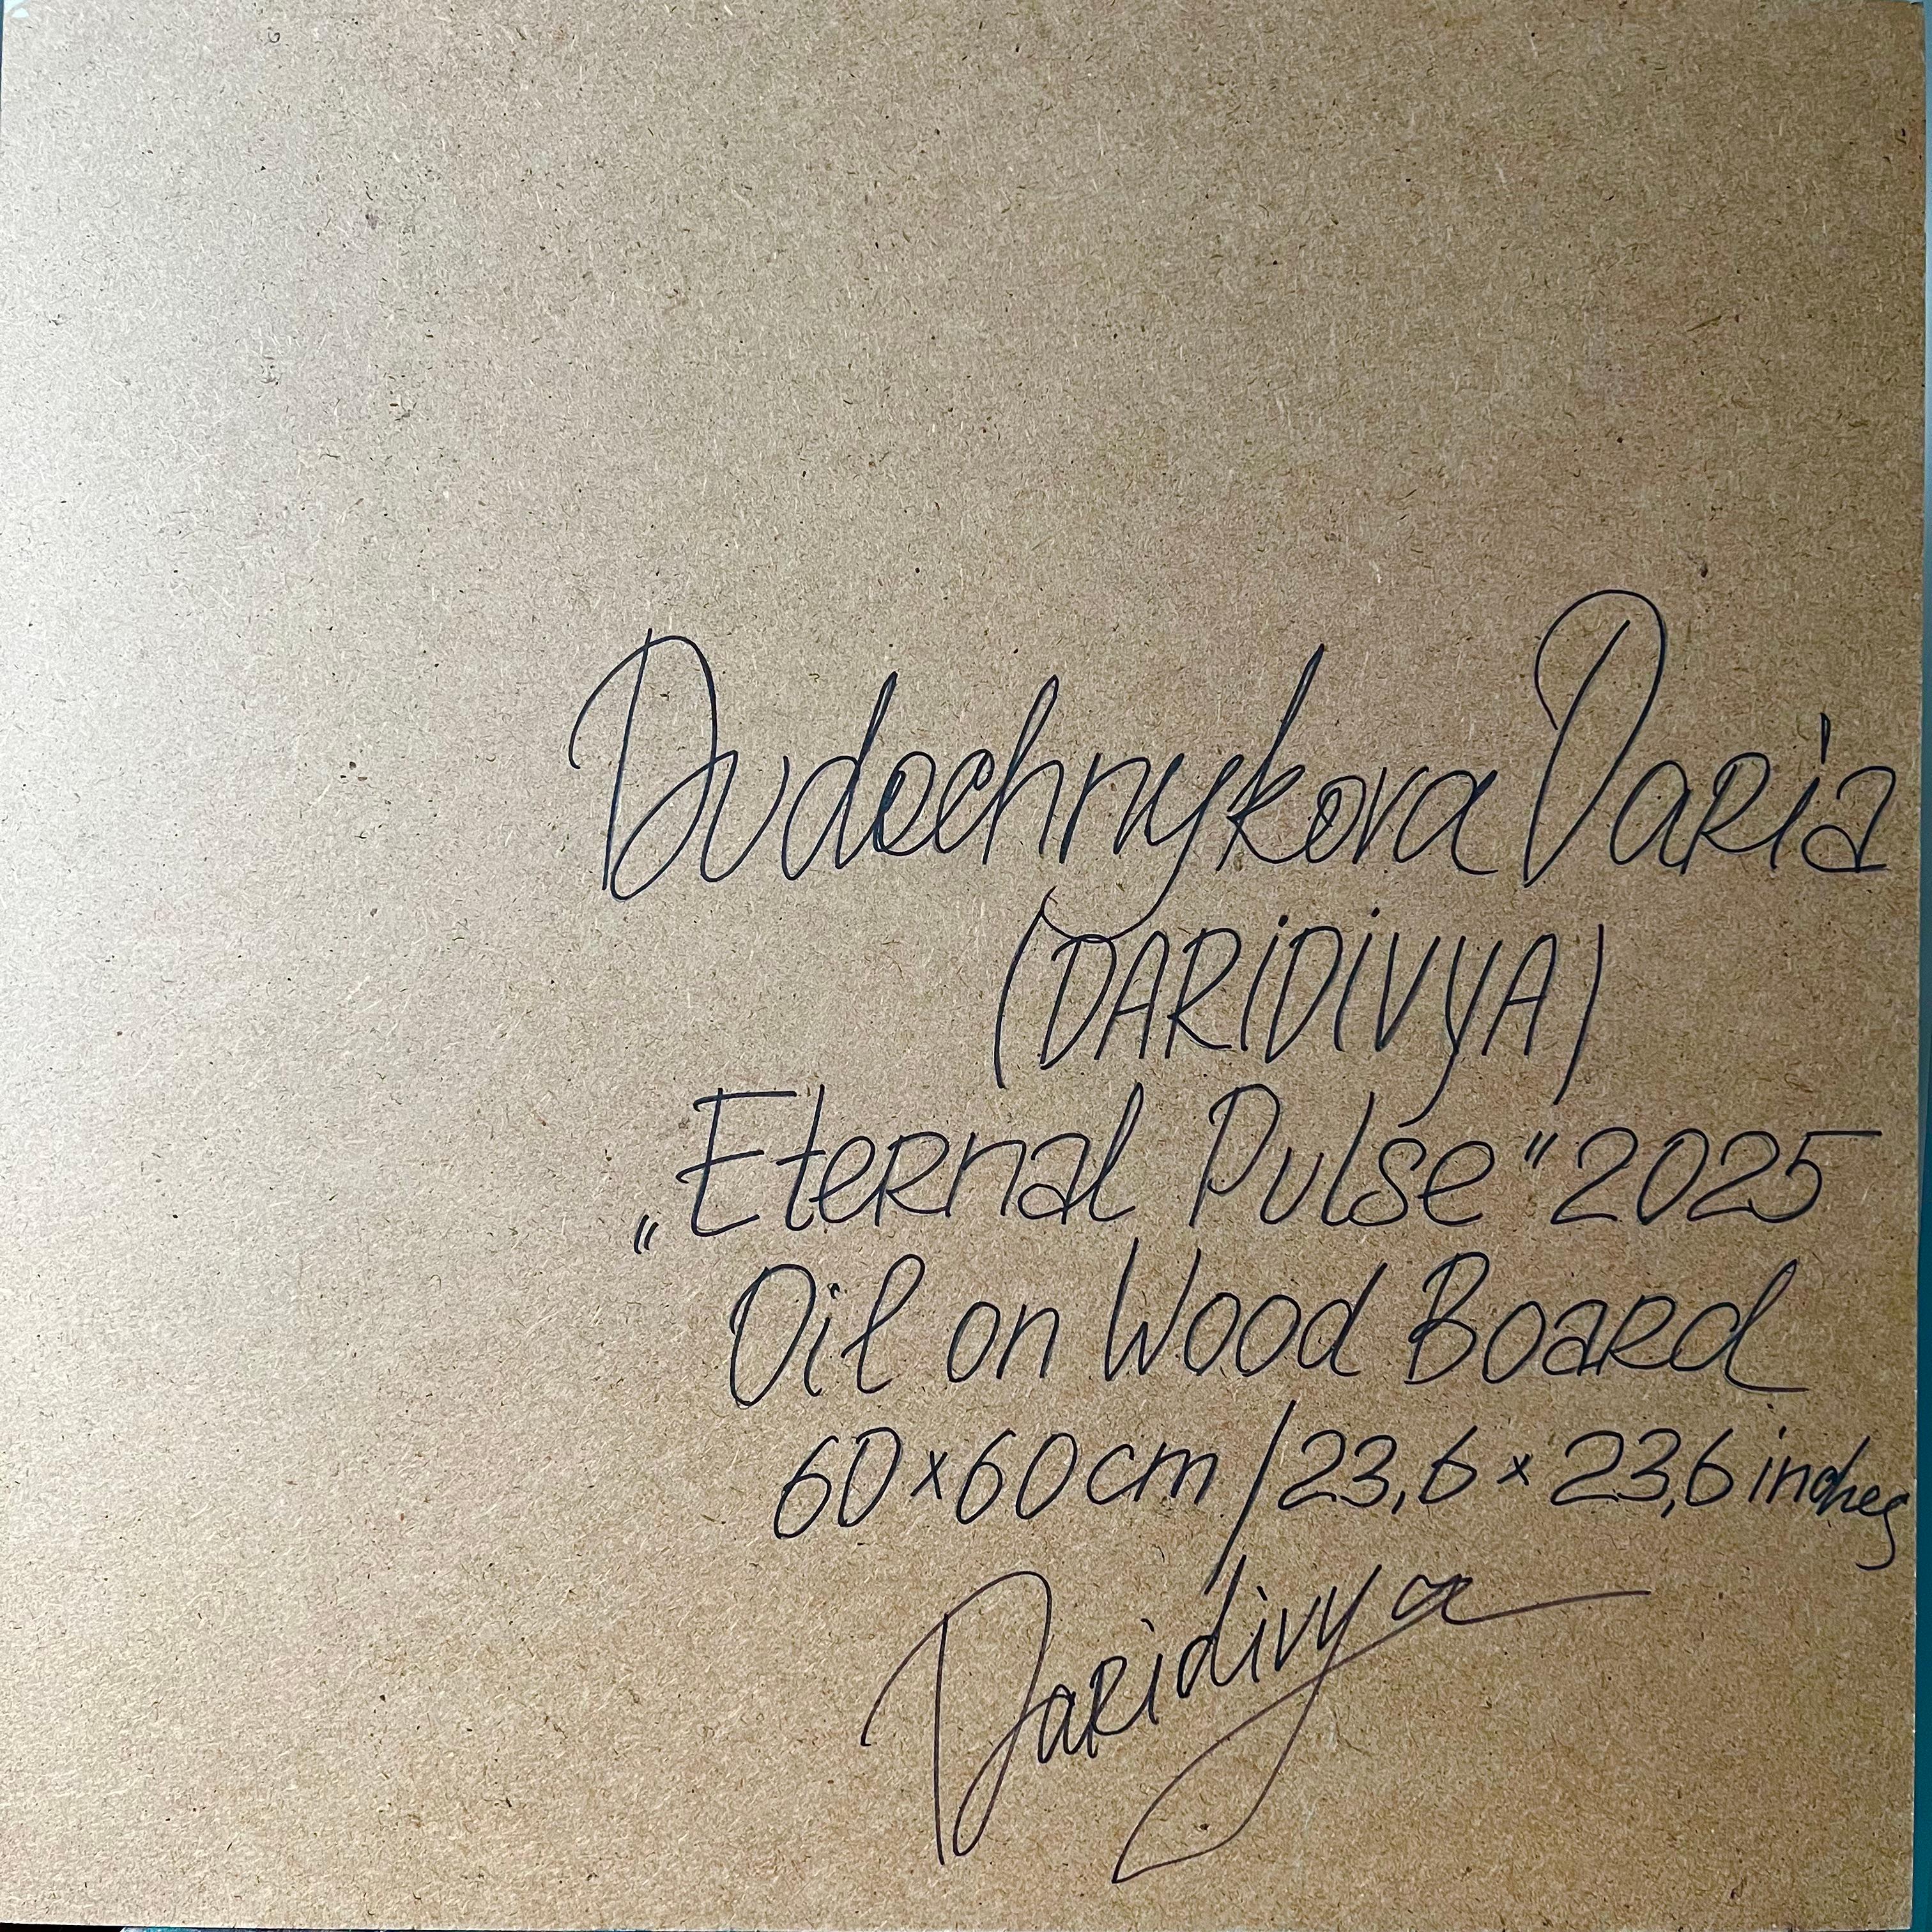 Dudochnykova Daria
(DARiDiVYA)
„Eternal Pulse“ 2025
Oil on Wood Board
60x60cm/23,6 x 23,6 inches
Daridivya